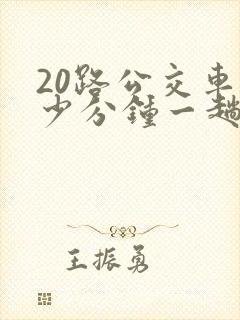 20路公交车
少分钟一趟
王振勇